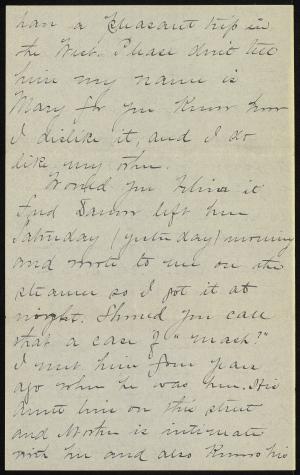 have a pleasant trip in
the West. Please don't tell
him my name is
Mary for you know how
I dislike it, and I do
like my other.
Would you believe it
Fred left here
Saturday (yesterday) morning
and wrote to me on the
steamer so I got it at
night. Should you call
that a case of "mash?"
I met him four years
ago when he was here. His
aunts live on this street
and Mother is intimate
with her and also knows his